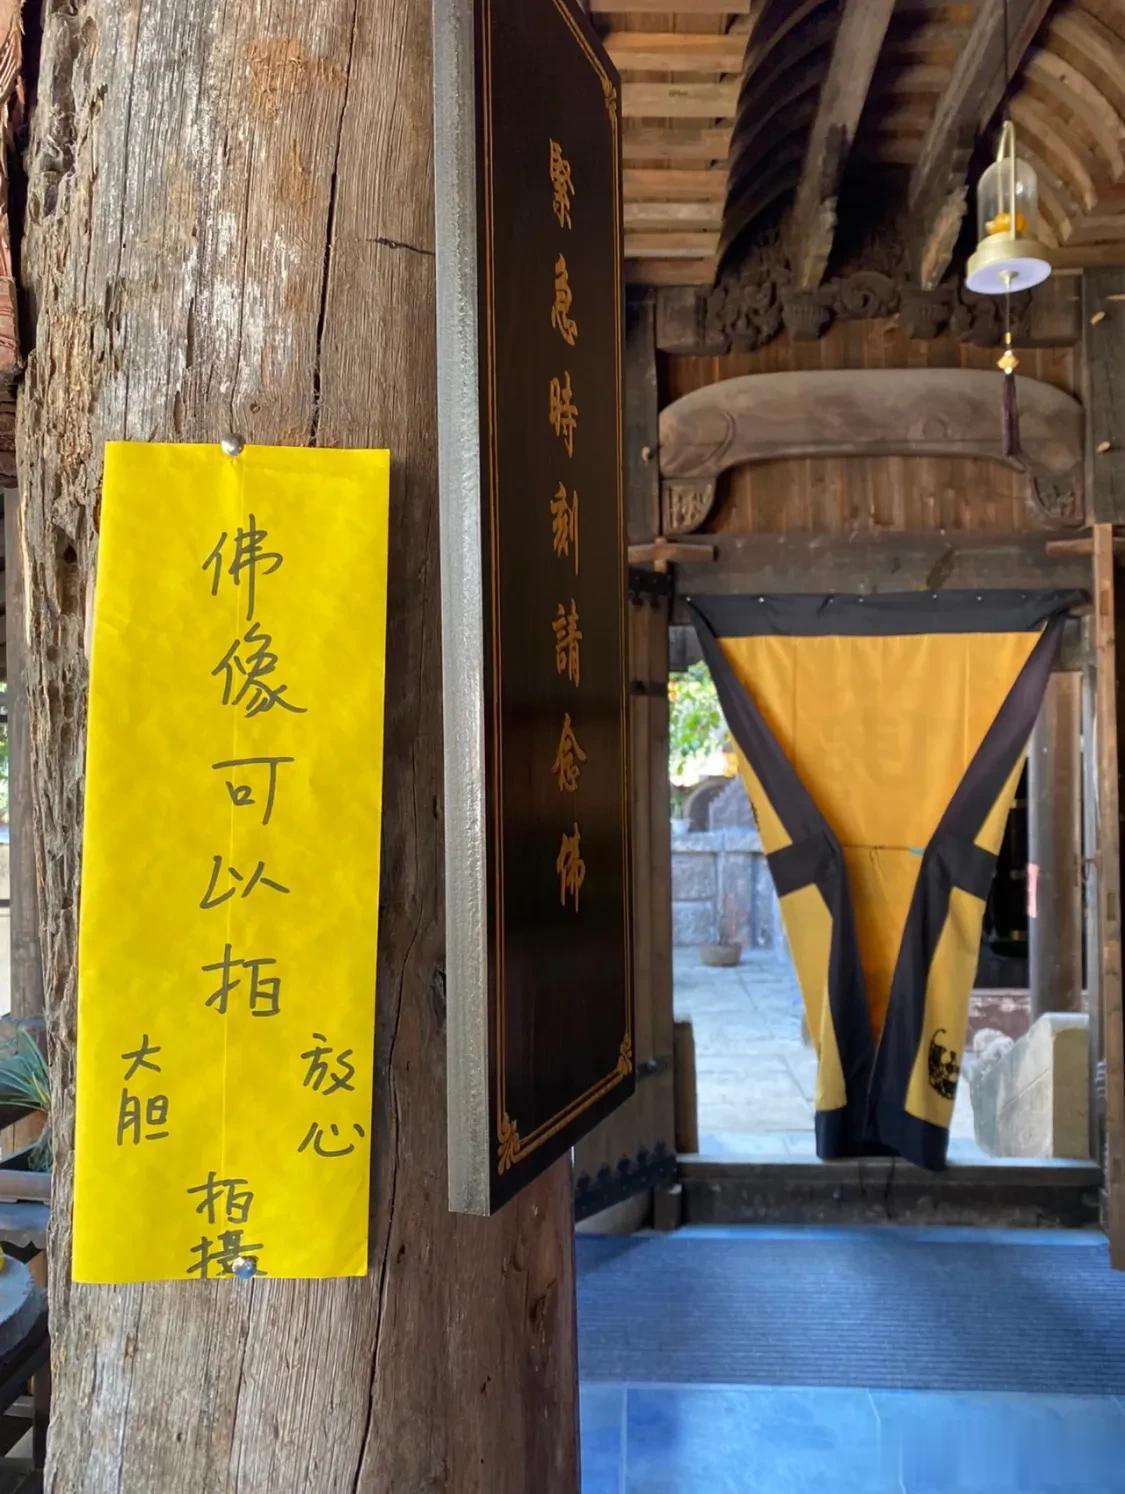 佛像可以拍
放心
大胆
拍摄
緊急時刻請念佛